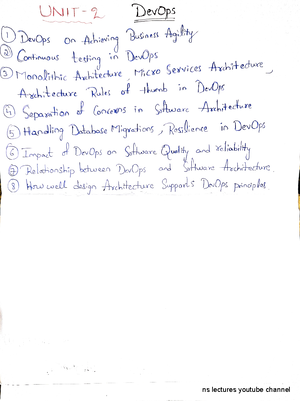 UNIT-2 DevOps
① DevOps on Achieving Business Agility
② Continuous testing in DevOps
③ Monolithic Architecture, Micro Services Architecture,
Architecture Rules of thumb in DevOps
④ Separation of Concerns in Software Architecture
⑤ Handling Database Migrations, Resilience in DevOps
⑥ Impact of DevOps on Software Quality and reliability
⑦ Relationship between DevOps and Software Architecture.
⑧ How well design Architecture Supports DevOps principles.
ns lectures youtube channel